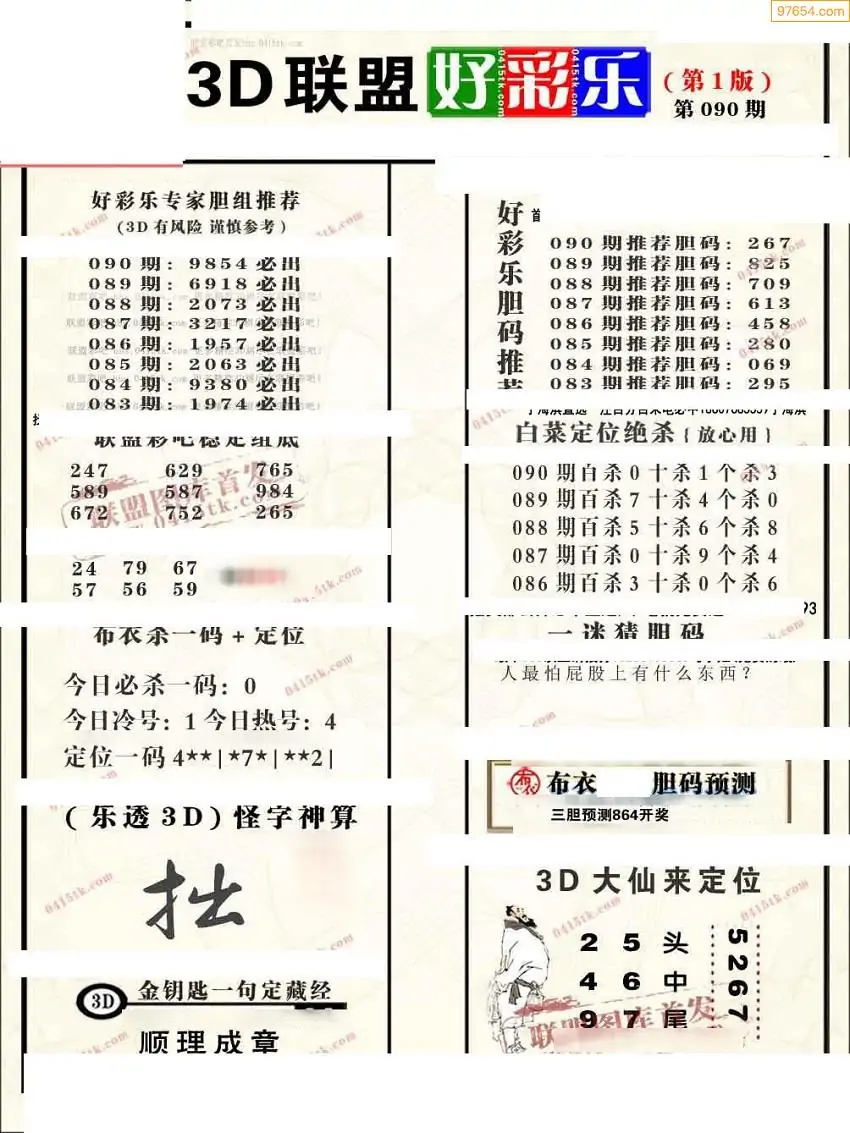 97654.com
3D联盟好彩乐
(第1版)
第090期
好彩乐专家胆组推荐
(3D有风险 谨慎参考)
090期: 9854必出
089期: 6918必出
088期: 2073必出
087期: 3217必出
086期: 1957必出
085期: 2063必出
084期: 9380必出
083期: 1974必出
联盟彩吧稳定组底
247 629 765
589 587 984
672 752 265
24 79 67
57 56 59
布衣杀一码+定位
今日必杀一码: 0
今日冷号: 1 今日热号: 4
定位一码 4**|*7*|**2|
(乐透3D)怪字神算
拙
3D 金钥匙一句定藏经
顺理成章
好彩乐胆码推荐
090期推荐胆码: 267
089期推荐胆码: 825
088期推荐胆码: 709
087期推荐胆码: 613
086期推荐胆码: 458
085期推荐胆码: 280
084期推荐胆码: 069
083期推荐胆码: 295
白菜定位绝杀{放心用}
090期百杀0十杀1个杀3
089期百杀7十杀4个杀0
088期百杀5十杀6个杀8
087期百杀0十杀9个杀4
086期百杀3十杀0个杀6
一迷猜胆码
人最怕屁股上有什么东西?
布衣 胆码预测
三胆预测864开奖
3D大仙来定位
2 5 头
4 6 中
9 7 尾
5267
联盟图库首发
0415tk.com